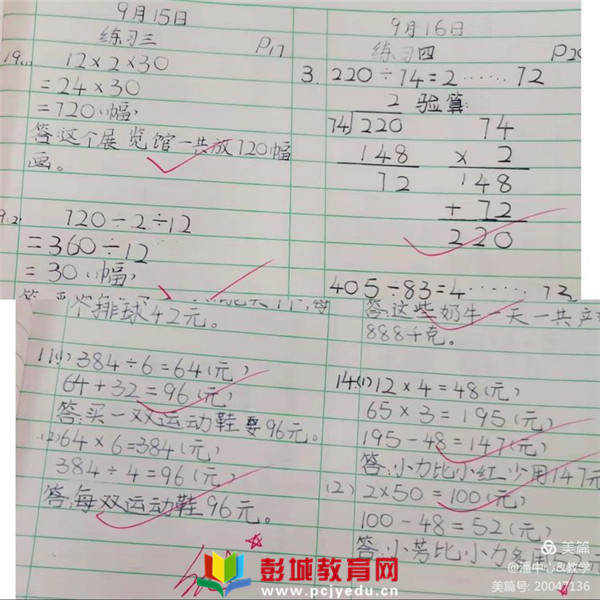 9月15日
练习三 P17
19(1) 12×2×30
=24×30
=720(幅)
答:这个展览馆一共放720幅
画。
9(2) 720÷2÷12
=360÷12
=30(幅)
9月16日
练习四
3. 220÷74=2……72
2 验算:
74 220 74
148 × 2
72 148
+ 72
220
405÷83=4……73
个排球42元。
11(1) 384÷6=64(元)
64+32=96(元)
答:买一双运动鞋要96元。
(2) 64×6=384(元)
384÷4=96(元)
答:每双运动鞋96元。
答:这些奶牛一天一共产
888千克。
14(1) 12×4=48(元)
65×3=195(元)
195-48=147(元)
答:小力比小红少用147元
(2) 2×50=100(元)
100-48=52(元)
答:小芳比小力多用
彭城教育网
www.pcjyedu.cn
美篇
@潘中心&教学
美篇号: 20047136